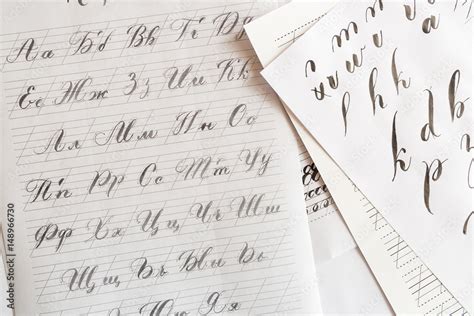 Аа Бб Вв Гг Дд
Ее Жж Зз Ии Кк
Лл Мм Нн Оо
Пп Рр Сс Тт Уу
Фф Хх Цц Чч Шш
Щщ Ъъ Ыы Ьь
Юю Яя
m m
h k k d b
k p
Adobe Stock | #148966730